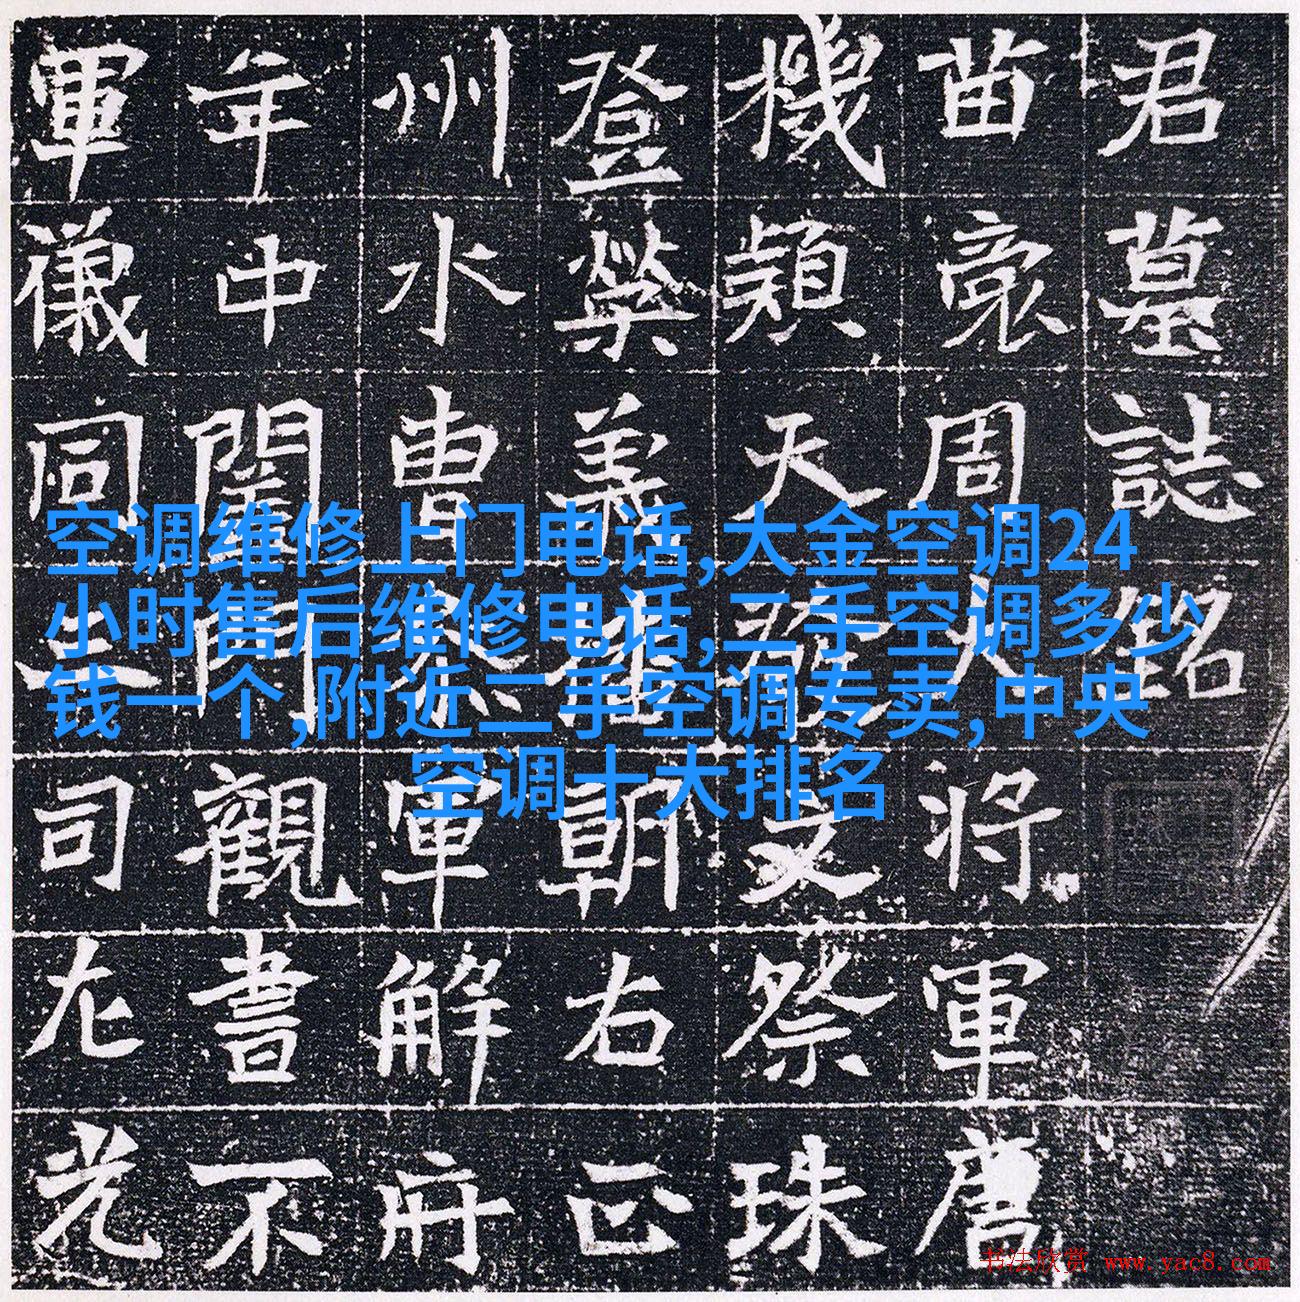 君墓誌銘
苗裔周大將軍唐
機穎天發文祭珠
登榮義朝右正
州水曹參軍解府
年中閨門觀書不
軍儀同三司左光
空调维修上门电话,大金空调24
小时售后维修电话,二手空调多少
钱一个,附近二手空调专卖,中央
空调十大排名
书法欣赏 www.yac8.com